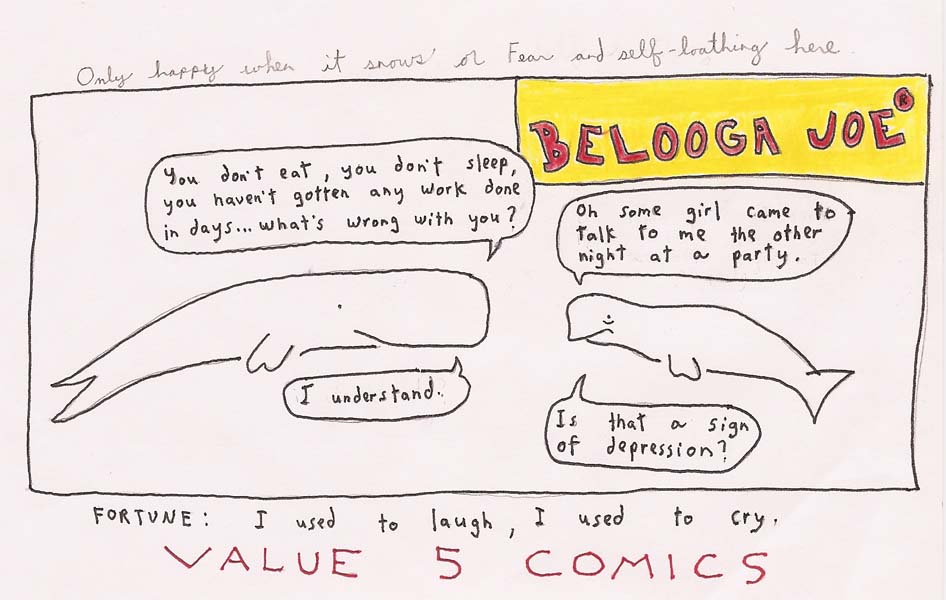 Only happy when it snows or Fear and self-loathing here
BELOOGA JOE®
You don't eat, you don't sleep,
you haven't gotten any work done
in days... what's wrong with you?
Oh some girl came to
talk to me the other
night at a party.
I understand.
Is that a sign
of depression?
FORTUNE: I used to laugh, I used to cry.
VALUE 5 COMICS